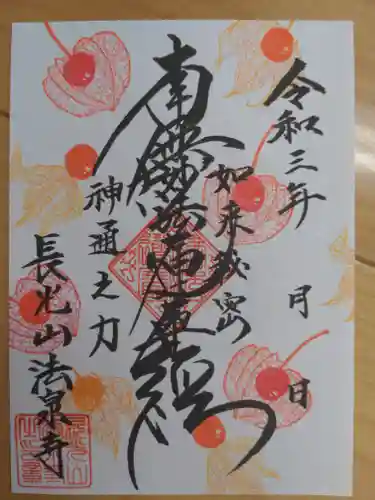 令和三年 月 日
如来秘密
南無妙法蓮華経
神通之力
長光山 法泉寺